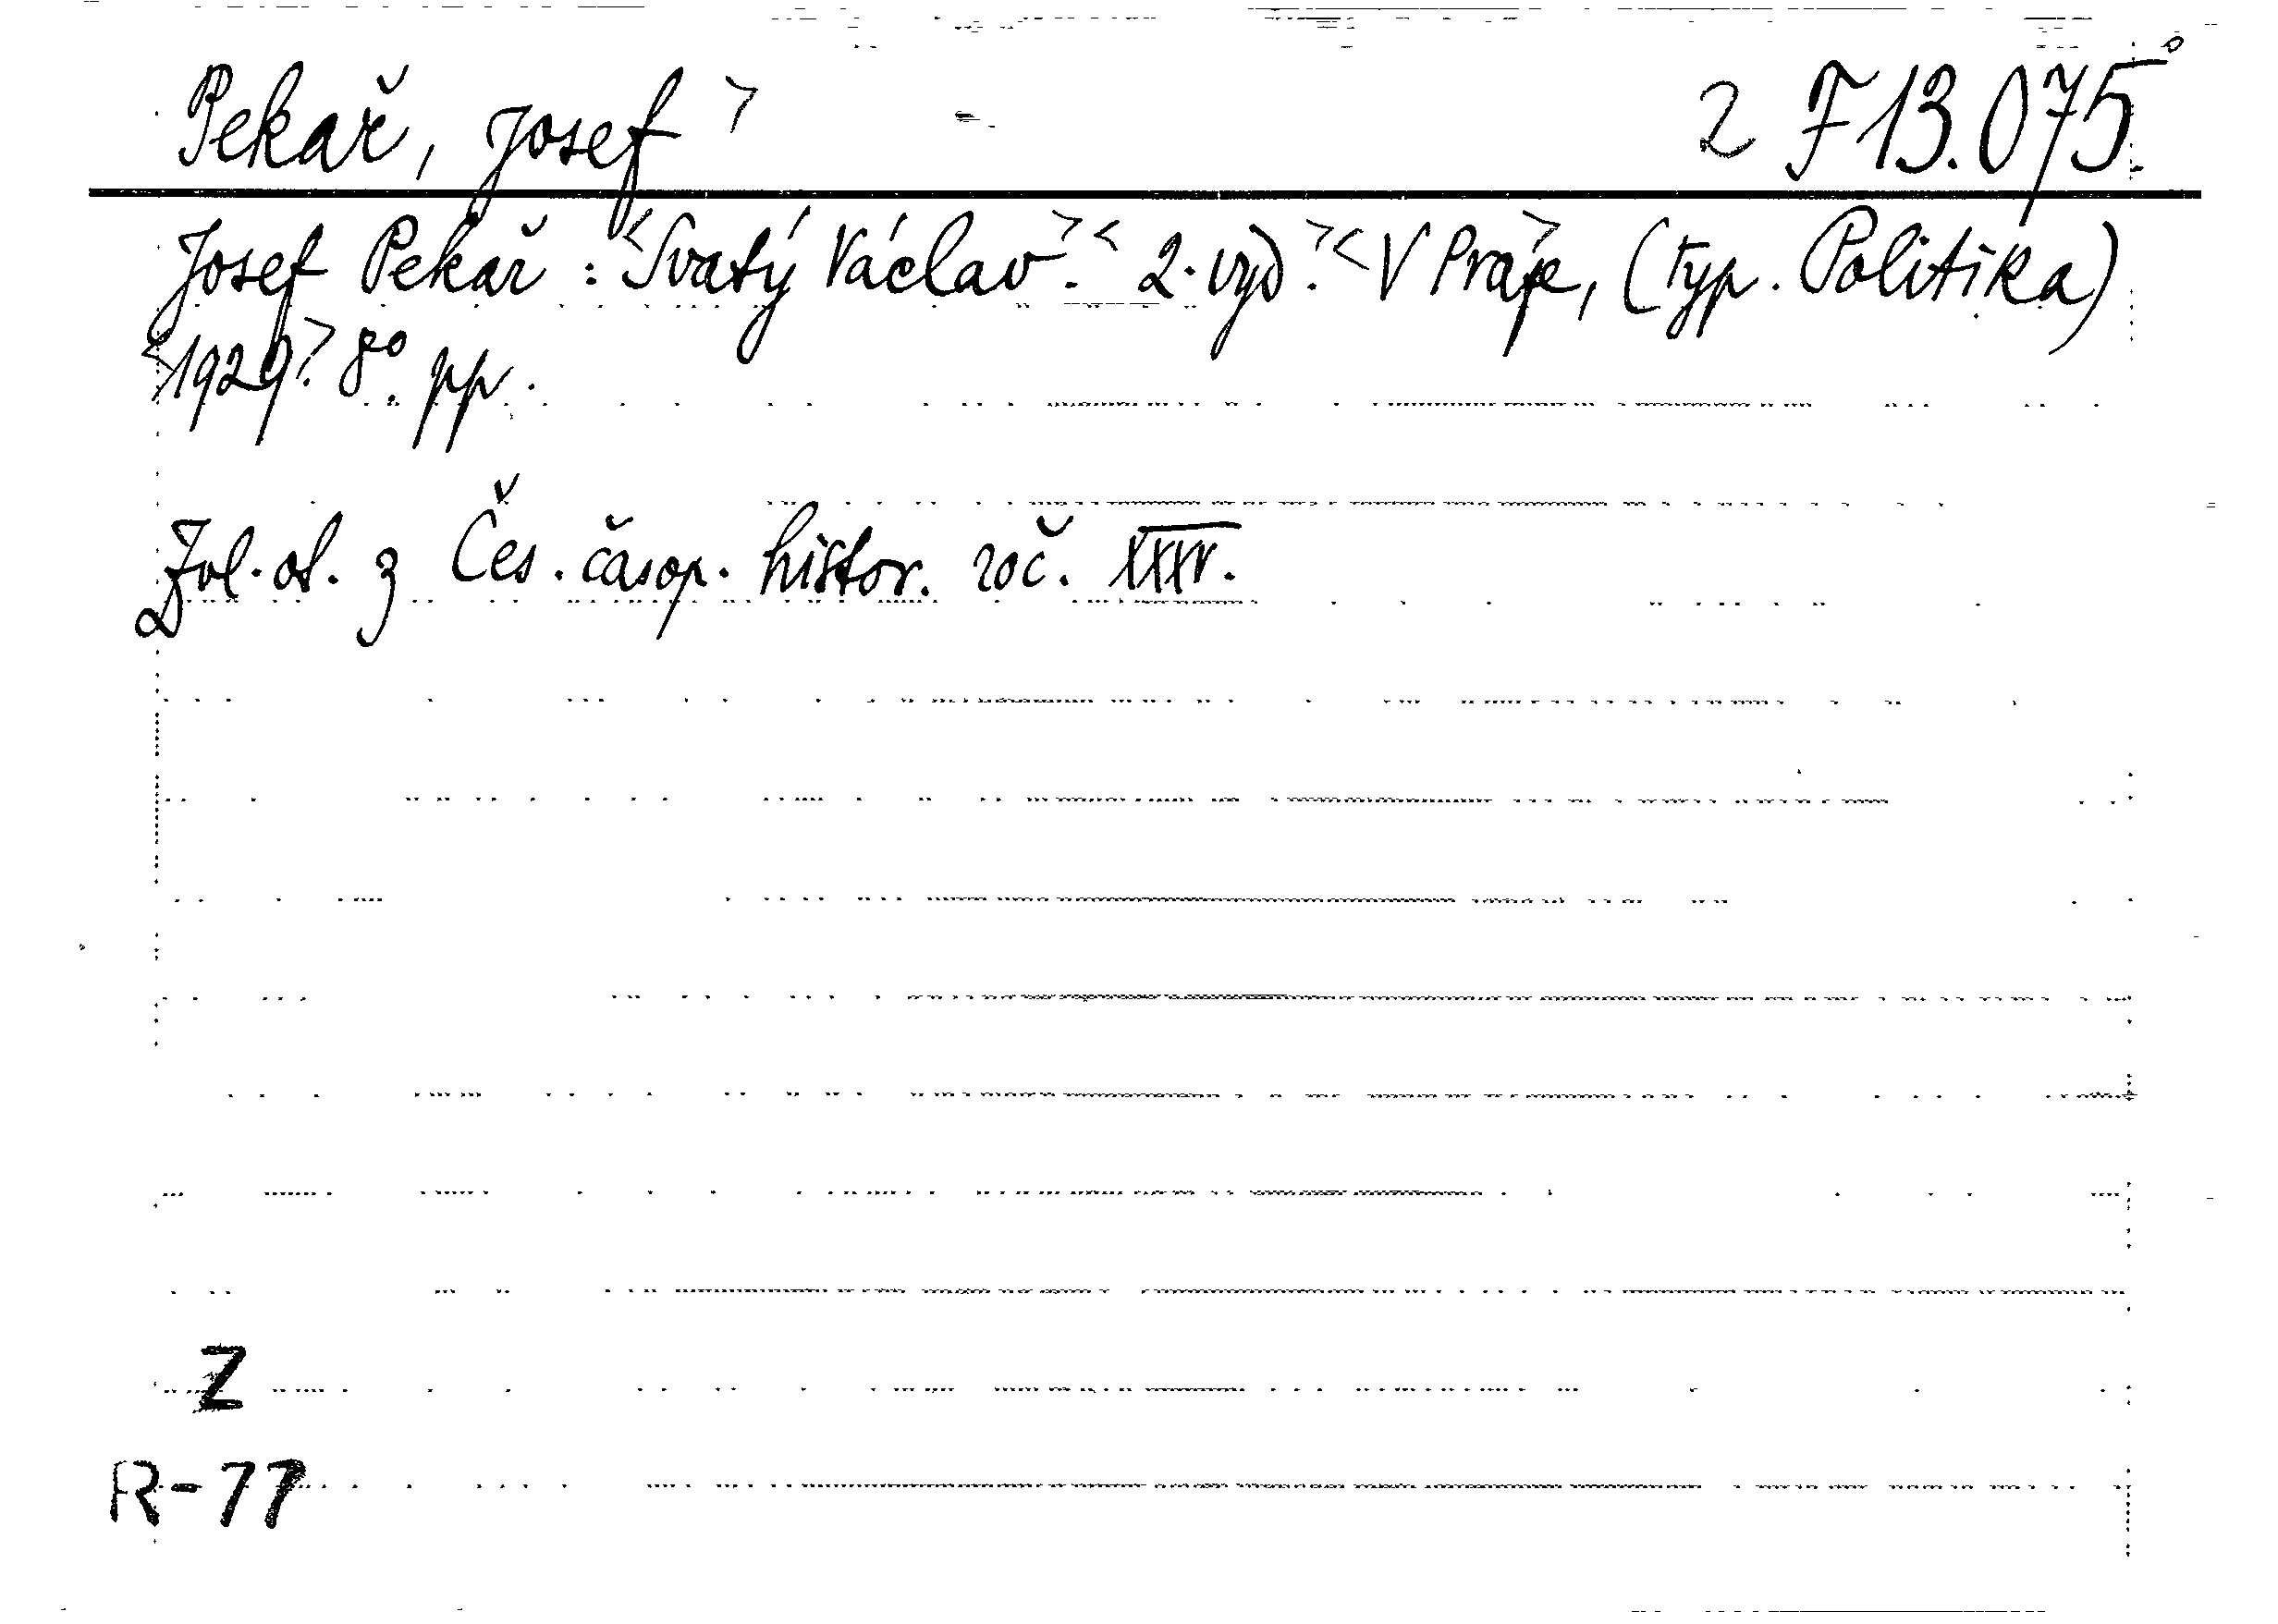 Pekař, Josef > 2 F 13.075
Josef Pekař : <Svatý Václav.> <2. vyd.> <V Praze>, (typ. Politika)
<1929>. 8°. pp.
Zvl. ot. z Čes. časop. histor. roč. XXXV.
Z
R-77